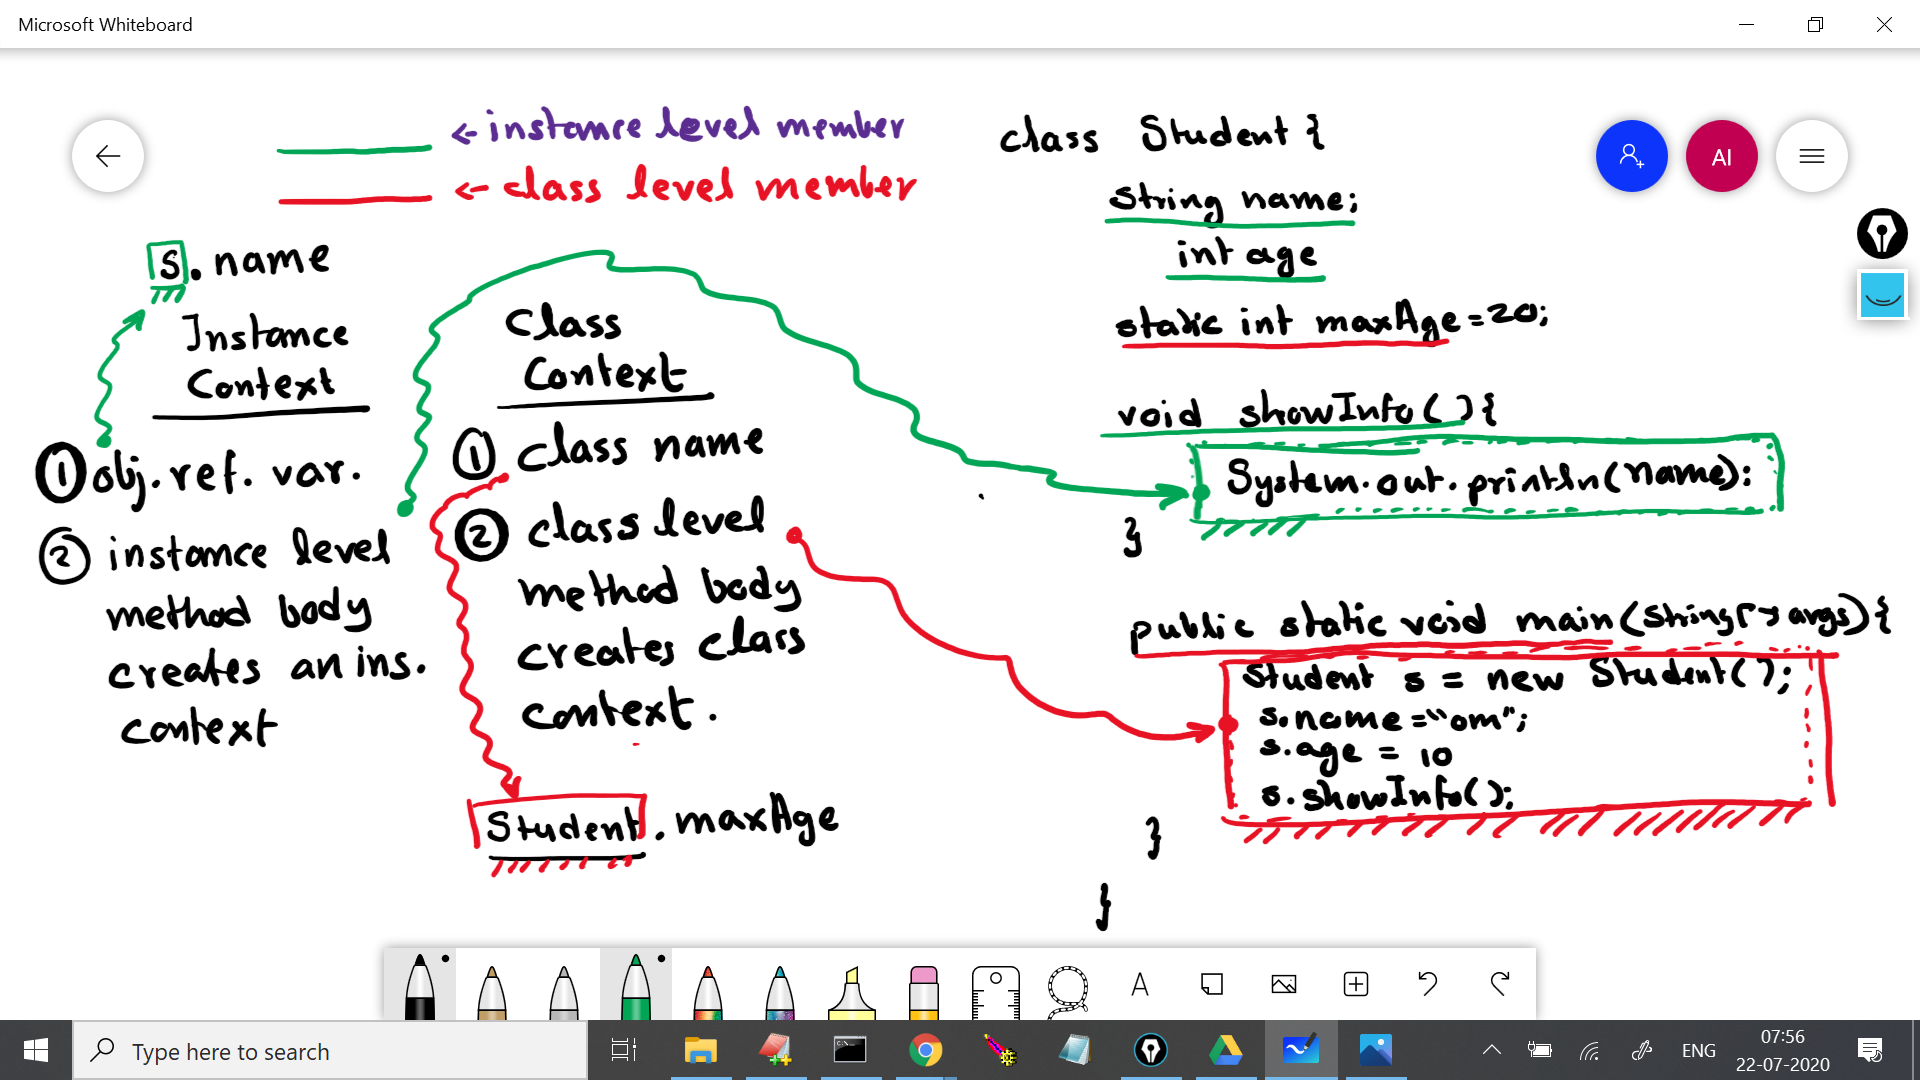 Microsoft Whiteboard
← instance level member
← class level member
AI
s.name
Instance
Context
① obj.ref. var.
② instance level
method body
creates an ins.
context
Class
Context
① class name
② class level
method body
creates class
context.
Student.maxAge
class Student {
String name;
int age
static int maxAge=20;
void showInfo(){
System.out.println(name);
}
public static void main(String[] args){
Student s = new Student();
s.name="om";
s.age = 10
s.showInfo();
}
}
A
Type here to search
ENG
07:56
22-07-2020